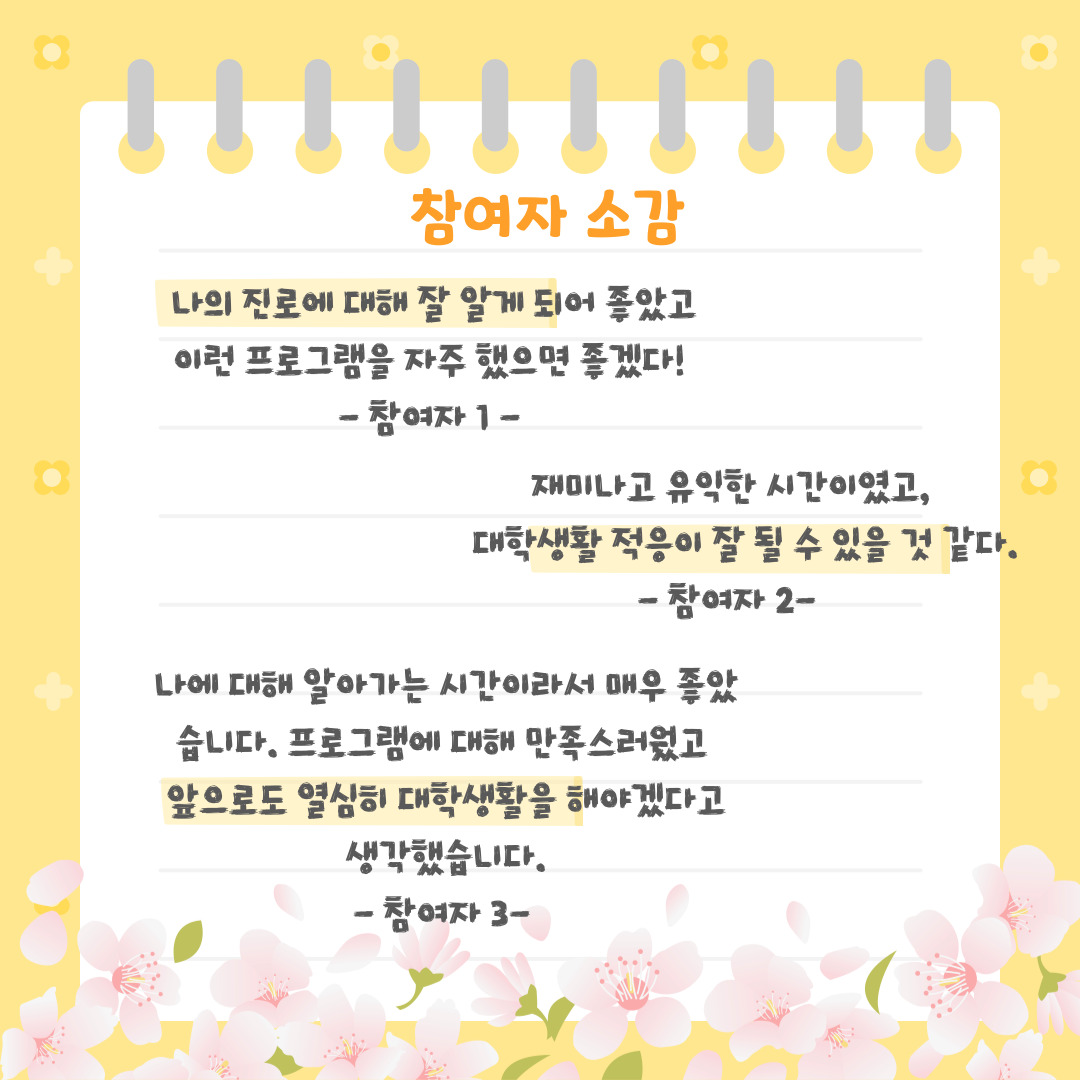 참여자 소감
나의 진로에 대해 잘 알게 되어 좋았고
이런 프로그램을 자주 했으면 좋겠다!
- 참여자 1 -
재미나고 유익한 시간이였고,
대학생활 적응이 잘 될 수 있을 것 같다.
- 참여자 2-
나에 대해 알아가는 시간이라서 매우 좋았
습니다. 프로그램에 대해 만족스러웠고
앞으로도 열심히 대학생활을 해야겠다고
생각했습니다.
- 참여자 3-